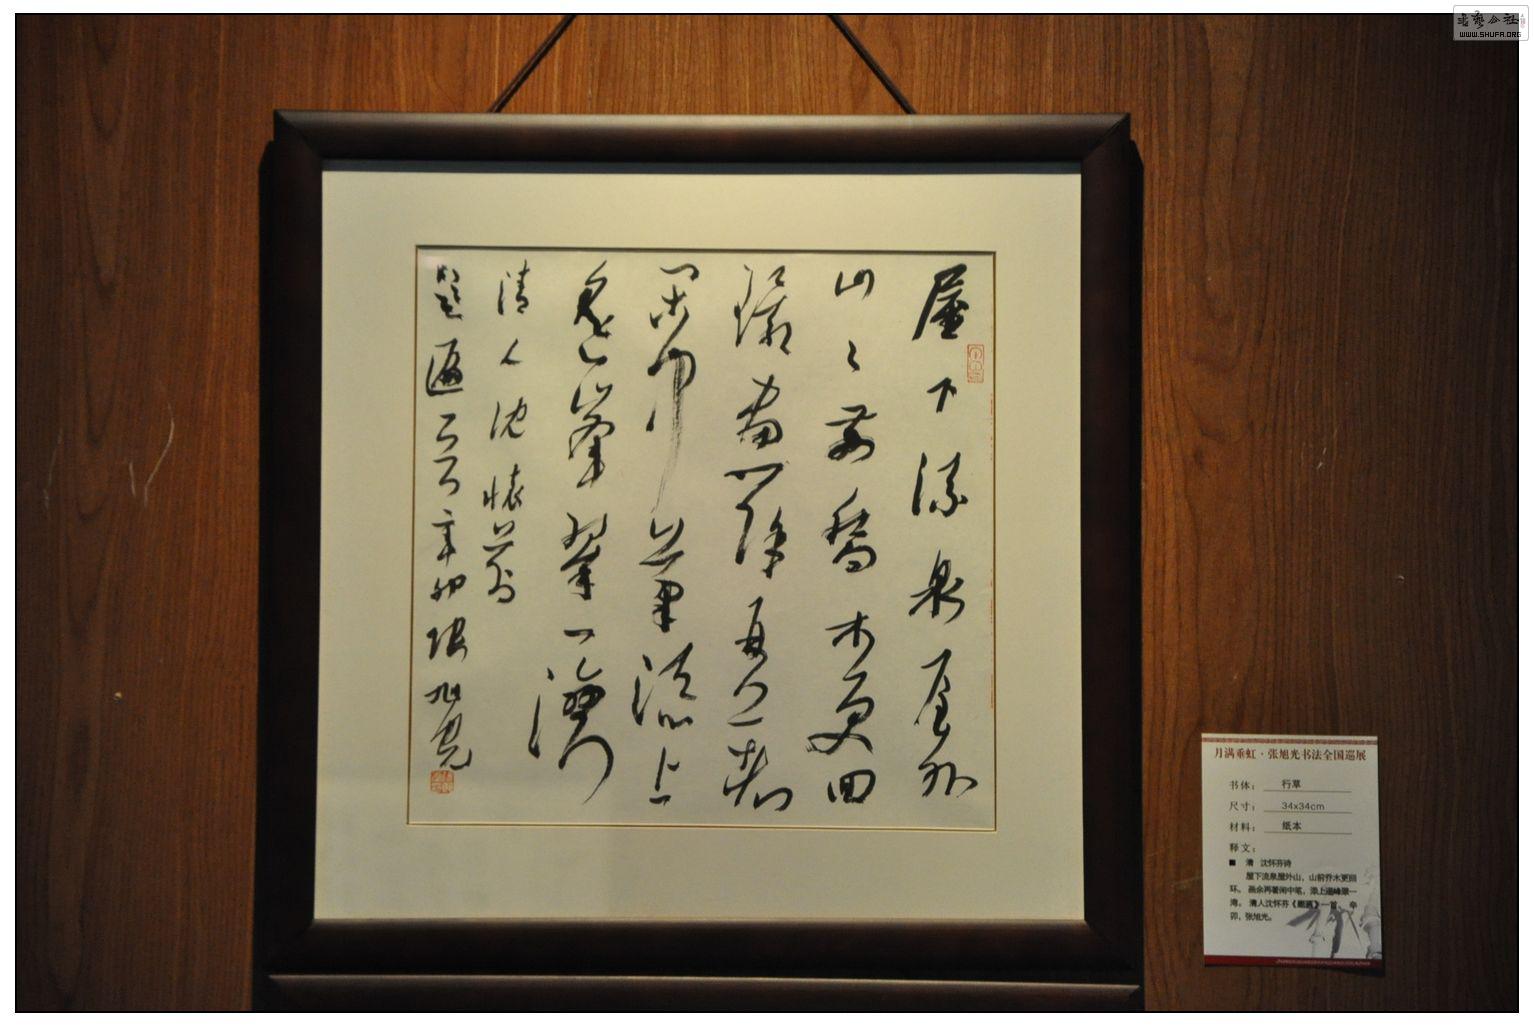 屋下流泉屋外
山〻前喬木更回
環畫餘再著
閑中筆添上
遠峯翠一灣
清人沈懷芬
題畫一首辛卯張旭光
月满垂虹·张旭光书法全国巡展
书体: 行草
尺寸: 34x34cm
材料: 纸本
释文:
■ 清 沈怀芬诗
屋下流泉屋外山,山前乔木更回
环。画余再著闲中笔,添上遥峰翠一
湾。清人沈怀芬《题画》一首。辛
卯,张旭光。
WWW.SHUFA.ORG